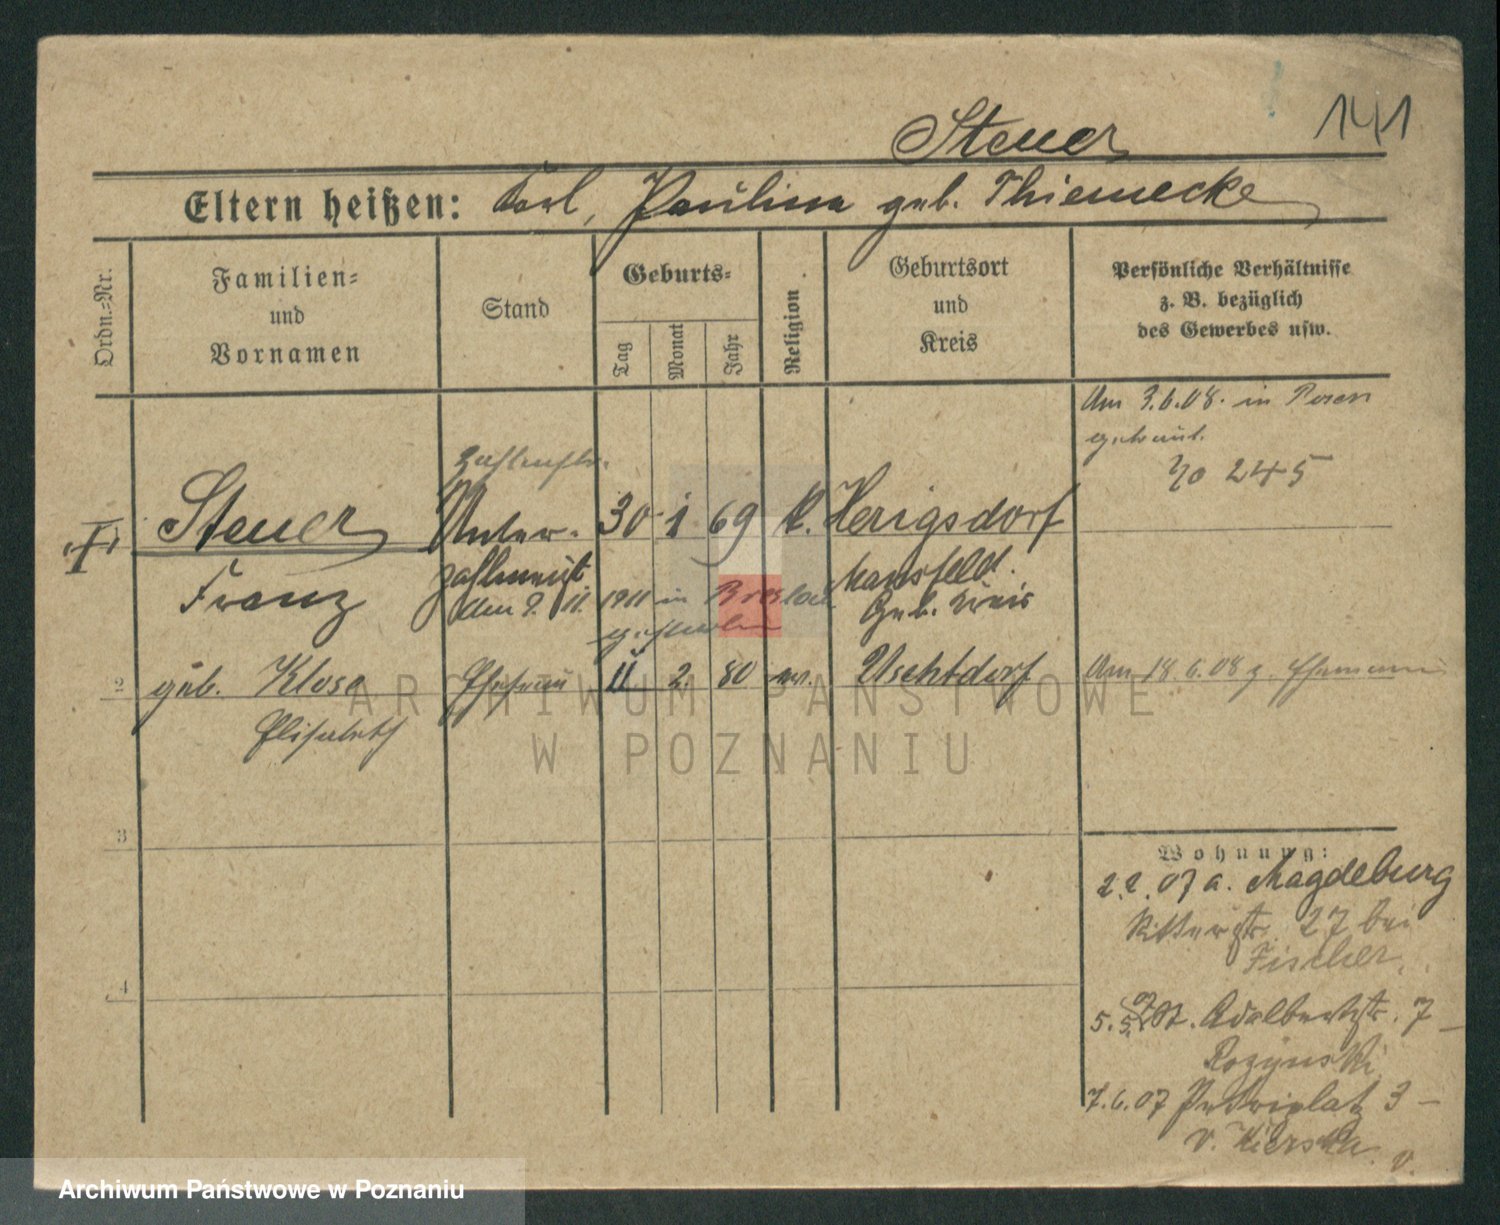 141
Steuer
Eltern heißen: Karl, Paulina geb. Thiemecke
Ordn.=Nr.
Familien=
und
Vornamen
Stand
Geburts=
Tag
Monat
Jahr
Religion
Geburtsort
und
Kreis
Persönliche Verhältnisse
z. B. bezüglich
des Gewerbes usw.
Am 3.6.08. in Posen
getraut.
No 245
Steuer
Franz
Unter-
zahlmeist.
30 1 69 k.
Herigsdorf
Mansfeld.
Geb. Kreis
am 9. 11. 1911 in Breslau
gestorben
2 geb. Klose
Elisabeth
Ehefrau
11 2 80 ev.
Uschtdorf
Am 18.6.08 z. Ehemann
3
4
Wohnung:
2.2.07 a. Magdeburg
Ritterstr. 27 bei
Fischer
5.5. Adalbertstr. 7
Rozynski
7.6.07 Petriplatz 3
v. Kierska
v.
ARCHIWUM PAŃSTWOWE
W POZNANIU
Archiwum Państwowe w Poznaniu